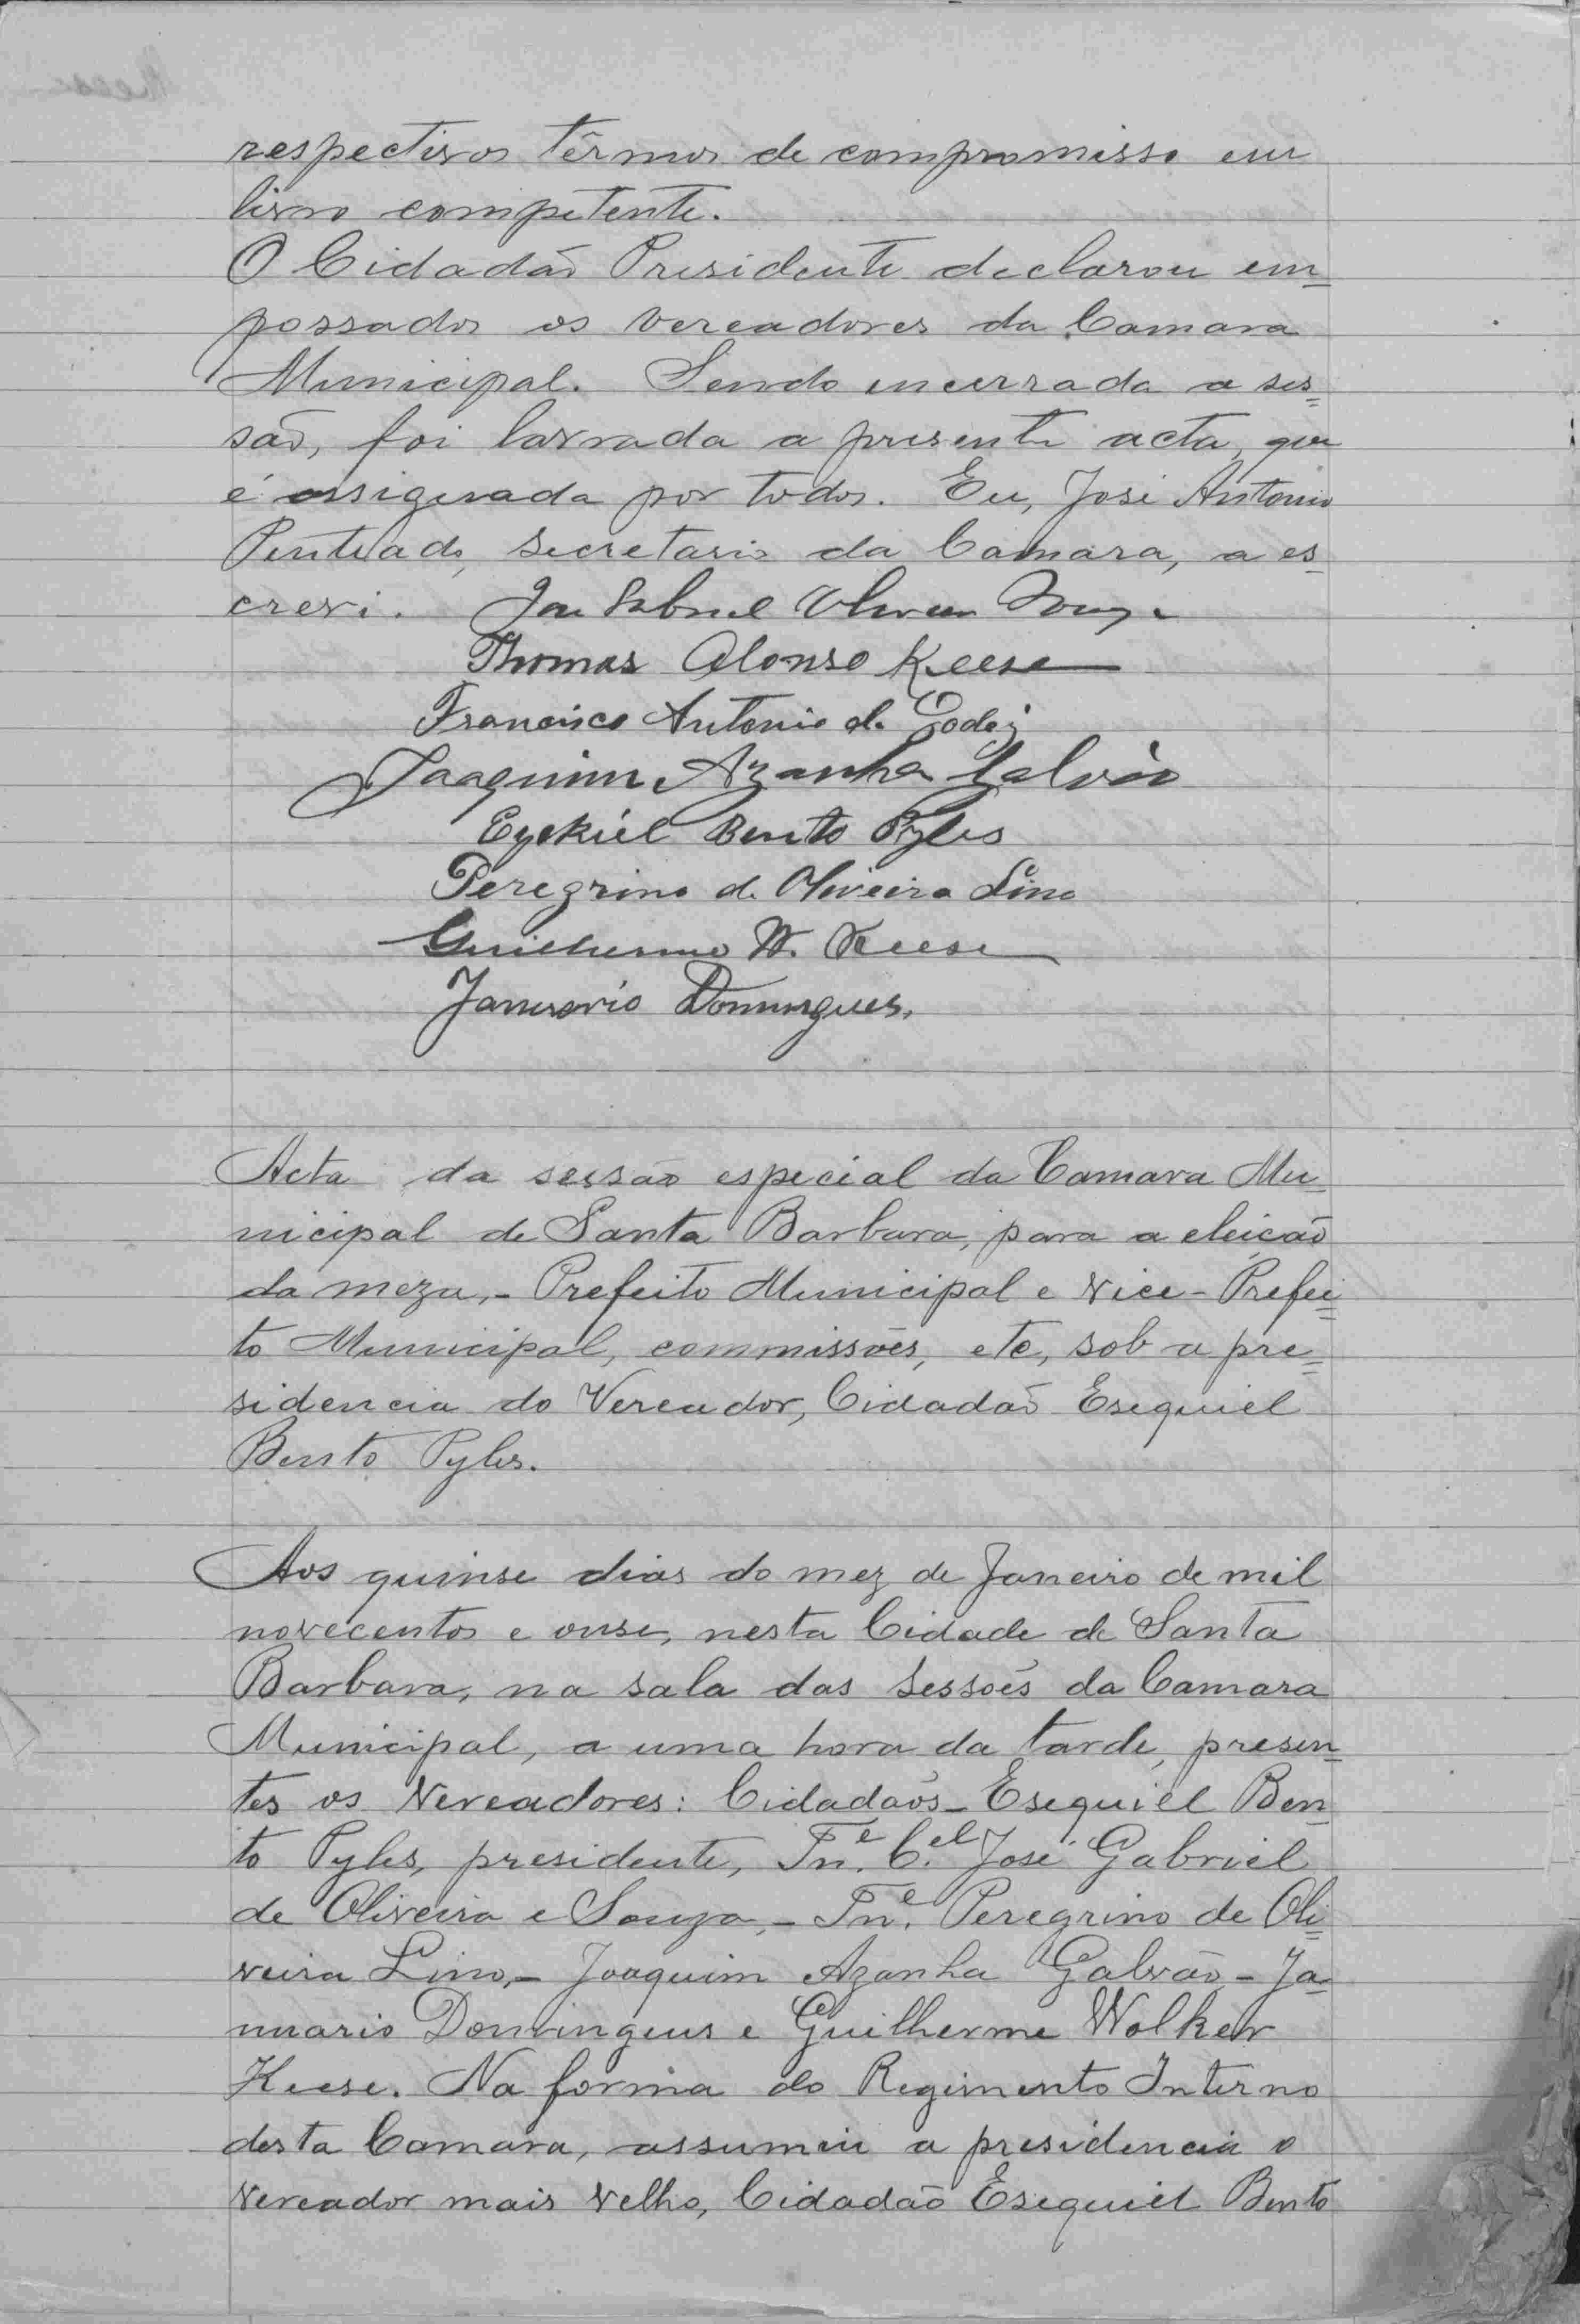 respectivos têrmos de compromisso em
livro competente.
O Cidadão Presidente declarou em=
possados os vereadores da Camara
Municipal. Sendo encerrada a ses=
são, foi lavrada a presente acta, que
é assignada por todos. Eu, José Antonio
Penteado, secretario da Camara, a es=
crevi. José Gabriel Oliveira Souza
Thomas Alonso Keese
Francisco Antonio de Godoy
Joaquim Azanha Galvão
Ezekiel Bento Pyles
Peregrino de Oliveira Lino
Guilherme W. Keese
Januario Domingues.
Acta da sessão especial da Camara Mu=
nicipal de Santa Barbara, para a eleição
da meza,- Prefeito Municipal e Vice-Prefei=
to Municipal, commissões, etc, sob a pre=
sidencia do Vereador, Cidadão Esequiel
Bento Pyles.
Aos quinse dias do mez de Janeiro de mil
novecentos e onse, nesta Cidade de Santa
Barbara, na sala das Sessões da Camara
Municipal, a uma hora da tarde, presen=
tes os Vereadores: Cidadãos- Esequiel Ben=
to Pyles, presidente, Tn.e C.el José Gabriel
de Oliveira e Souza,- Tn.e Peregrino de Oli=
veira Lino,- Joaquim Azanha Galvão- Ja=
nuario Domingues e Guilherme Wolker
Keese. Na forma do Regimento Interno
desta Camara, assumiu a presidencia o
Vereador mais velho, Cidadão Esequiel Bento